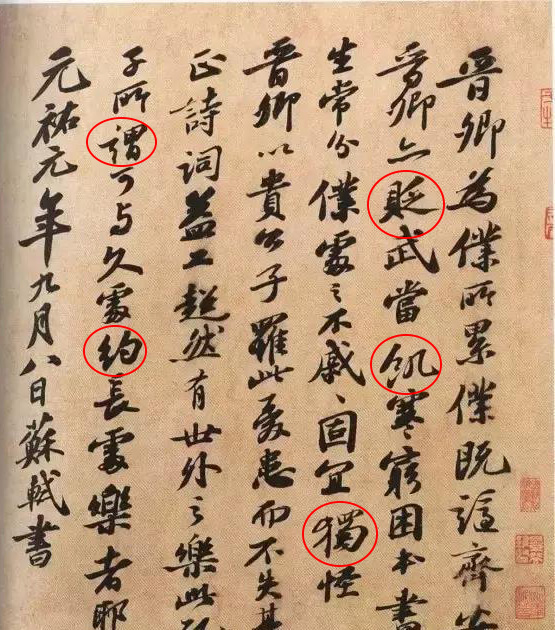 晉卿為僕所累僕既謫齊安
晉卿亦貶武當飢寒窮困本書
生常分僕處之不戚〻固宜獨怪
晉卿以貴公子罹此憂患而不失其
正詩詞益工超然有世外之樂此孔
子所謂可與久處約長處樂者耶
元祐元年九月八日蘇軾書